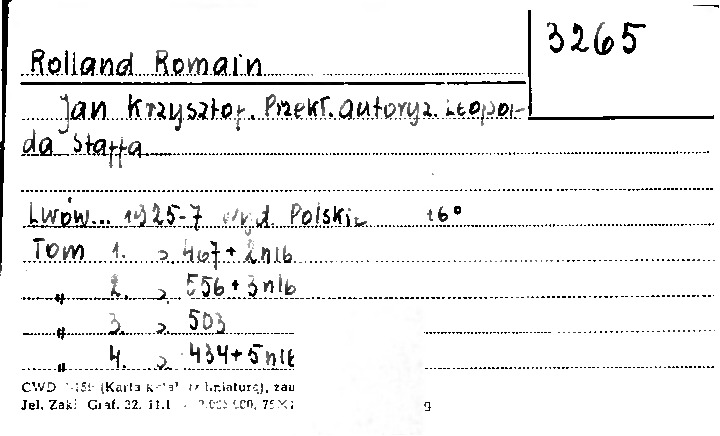 3265
Rolland Romain
Jan Krzysztof. Przekł. autoryz. Leopol-
da Staffa
Lwów... 1925-7 wyd. Polskie 16°
Tom 1. s. 467 + 2 nlb
" 2. s. 556 + 3 nlb
" 3. s. 503
" 4. s. 434 + 5 nlb
CWD (Karta
Jel. Zakł. Graf. 32. 11.1